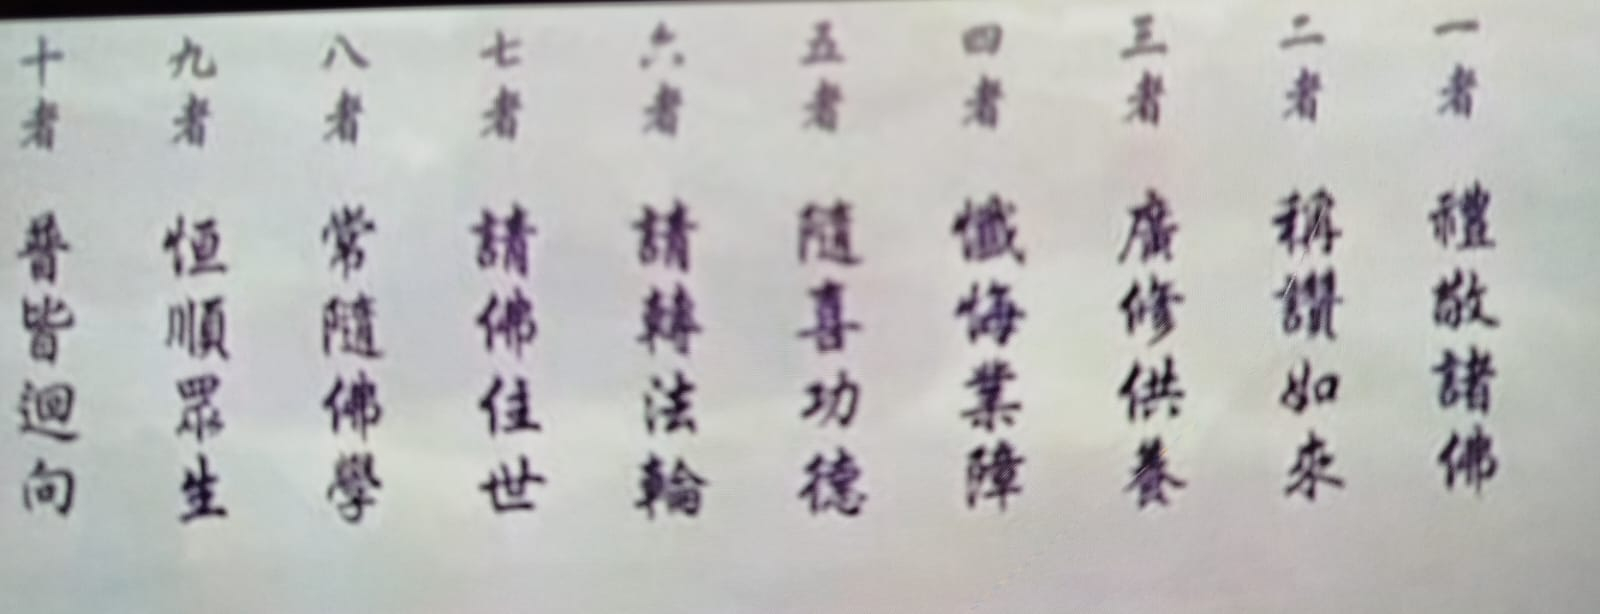 一者 禮敬諸佛
二者 稱讚如來
三者 廣修供養
四者 懺悔業障
五者 隨喜功德
六者 請轉法輪
七者 請佛住世
八者 常隨佛學
九者 恒順眾生
十者 普皆迴向